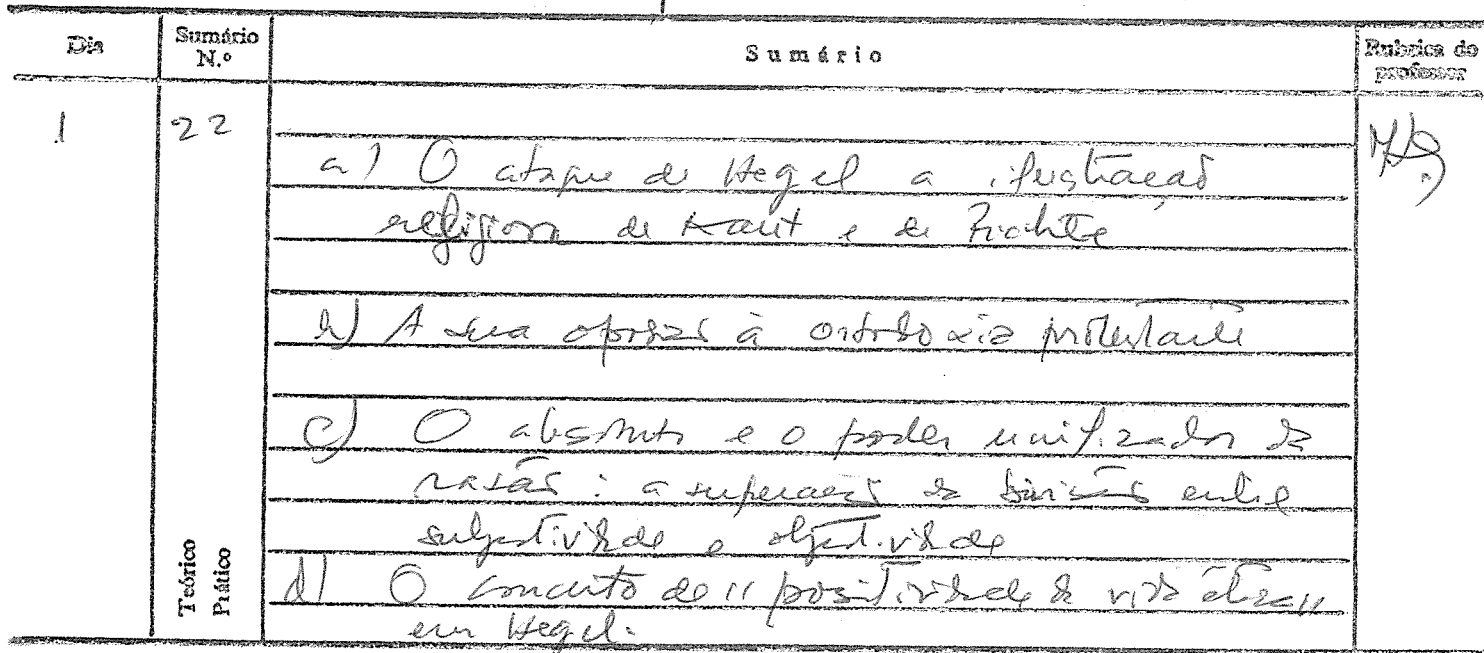 Dia
Sumário
N.º
Sumário
Rubrica do
professor
1
22
a) O ataque de Hegel a ilustração
religiosa de Kant e de Fichte
b) A sua oposição à ortodoxia protestante
c) O absoluto e o poder unificador da
razão: a superação da divisão entre
subjectividade e objectividade
d) O conceito de "positividade da vida ética"
em Hegel.
Teórico
Prático